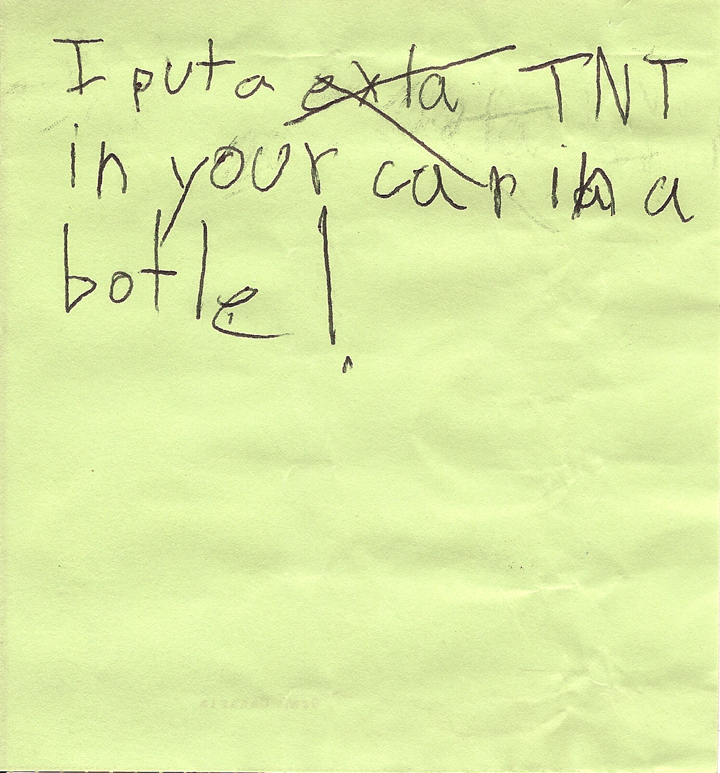 I put a exta TNT
in your car in a
botle!